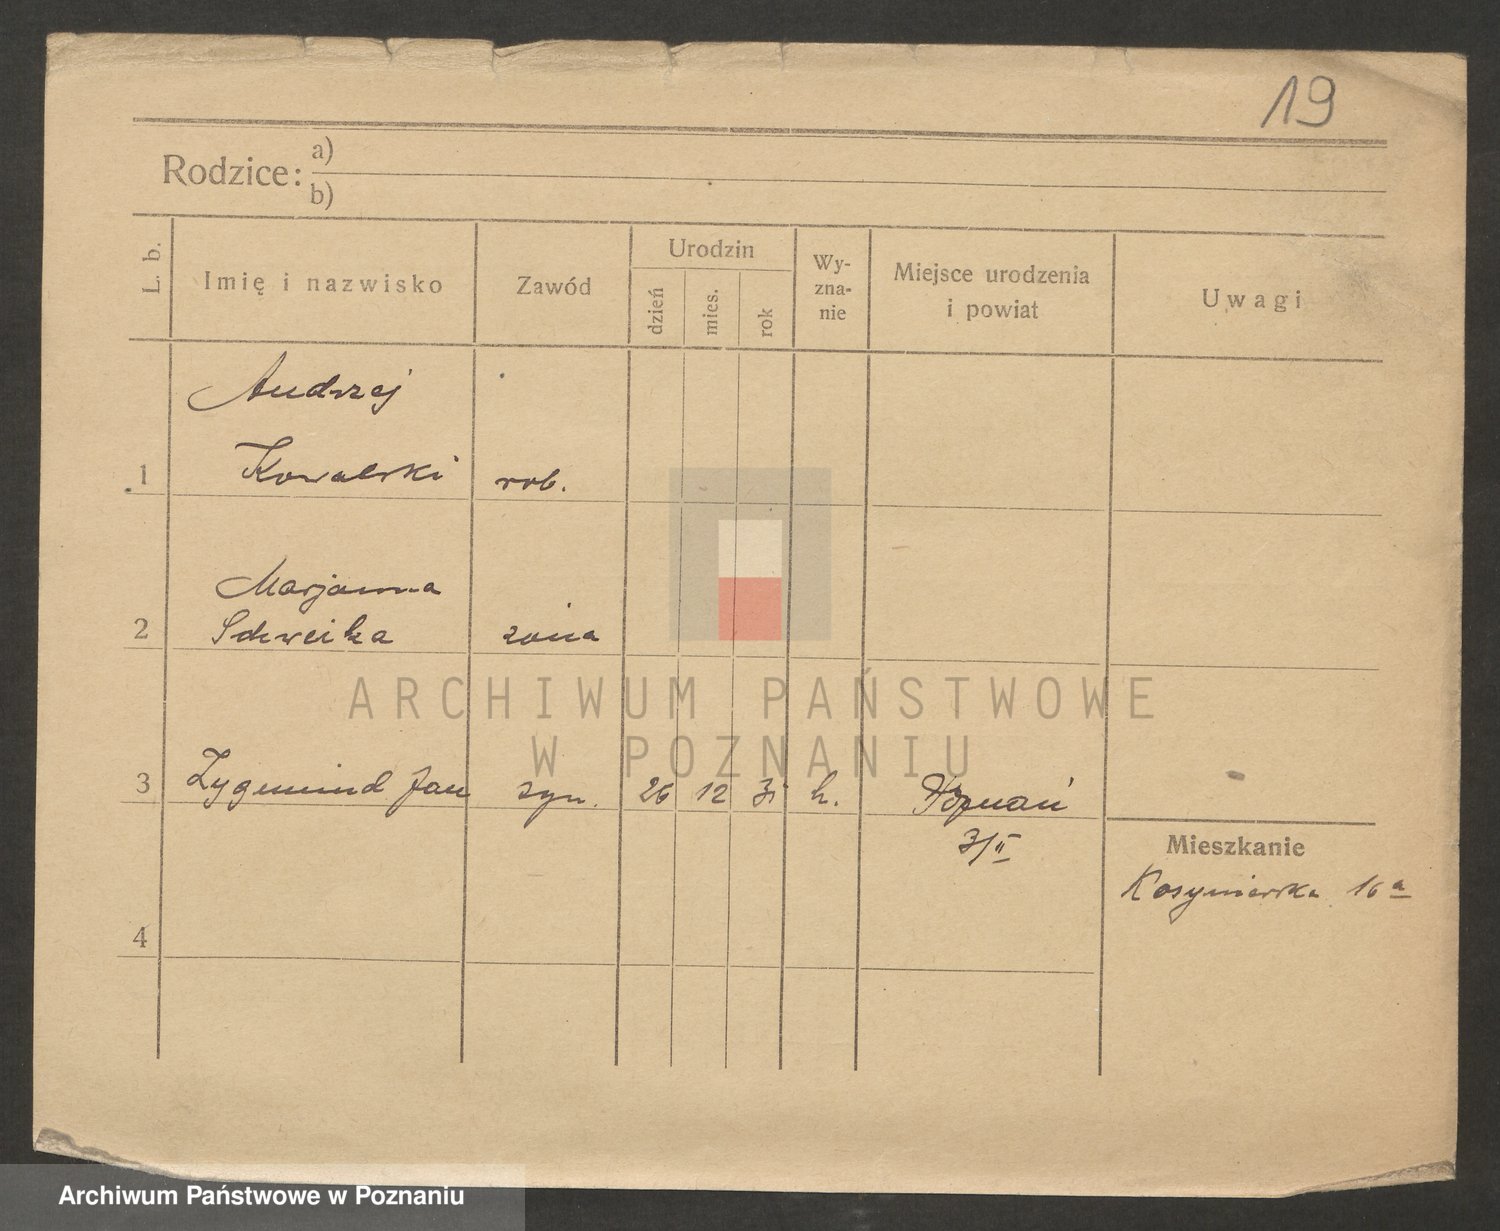 19
Rodzice:
a)
b)
L. b.
Imię i nazwisko
Zawód
Urodzin
dzień
mies.
rok
Wy-
zna-
nie
Miejsce urodzenia
i powiat
Uwagi
Andrzej
1 Kowalski rob.
Marjanna
2 Schweika żona
3 Zygmund Jan syn. 26 12 31 k. Poznań
3/II
Mieszkanie
16a
4
ARCHIWUM PAŃSTWOWE
W POZNANIU
Archiwum Państwowe w Poznaniu